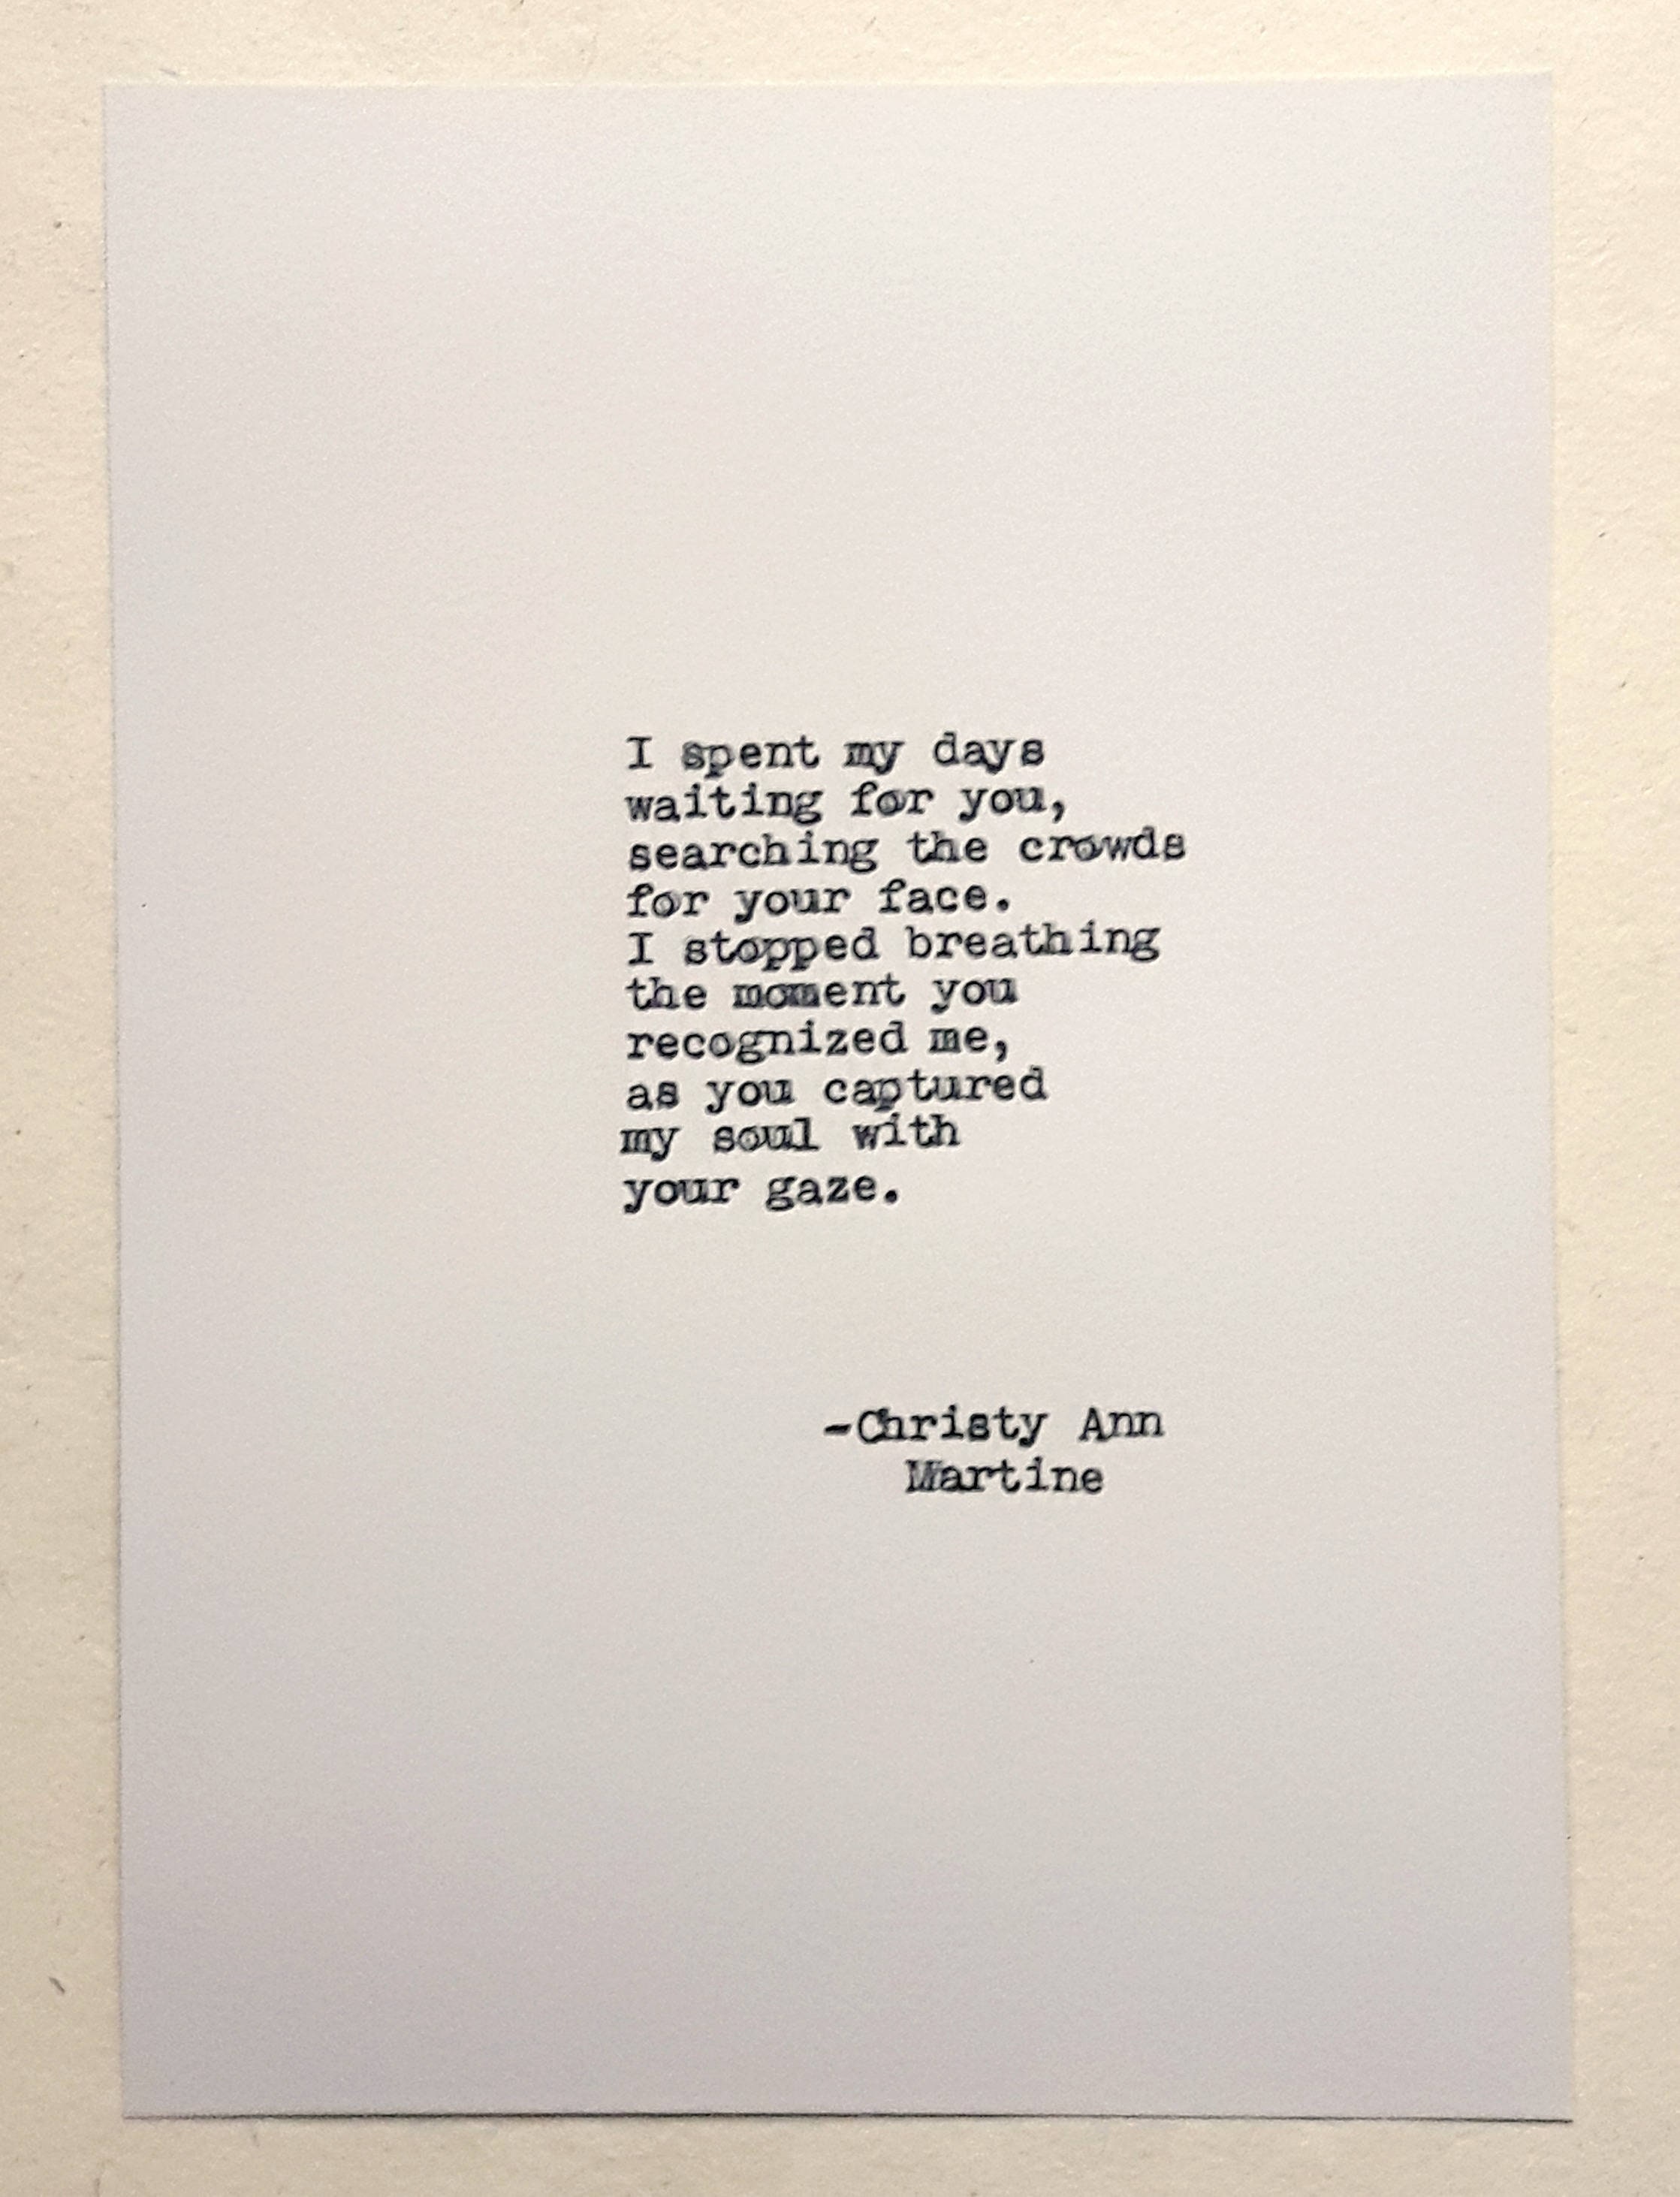 I spent my days
waiting for you,
searching the crowds
for your face.
I stopped breathing
the moment you
recognized me,
as you captured
my soul with
your gaze.
-Christy Ann
Martine